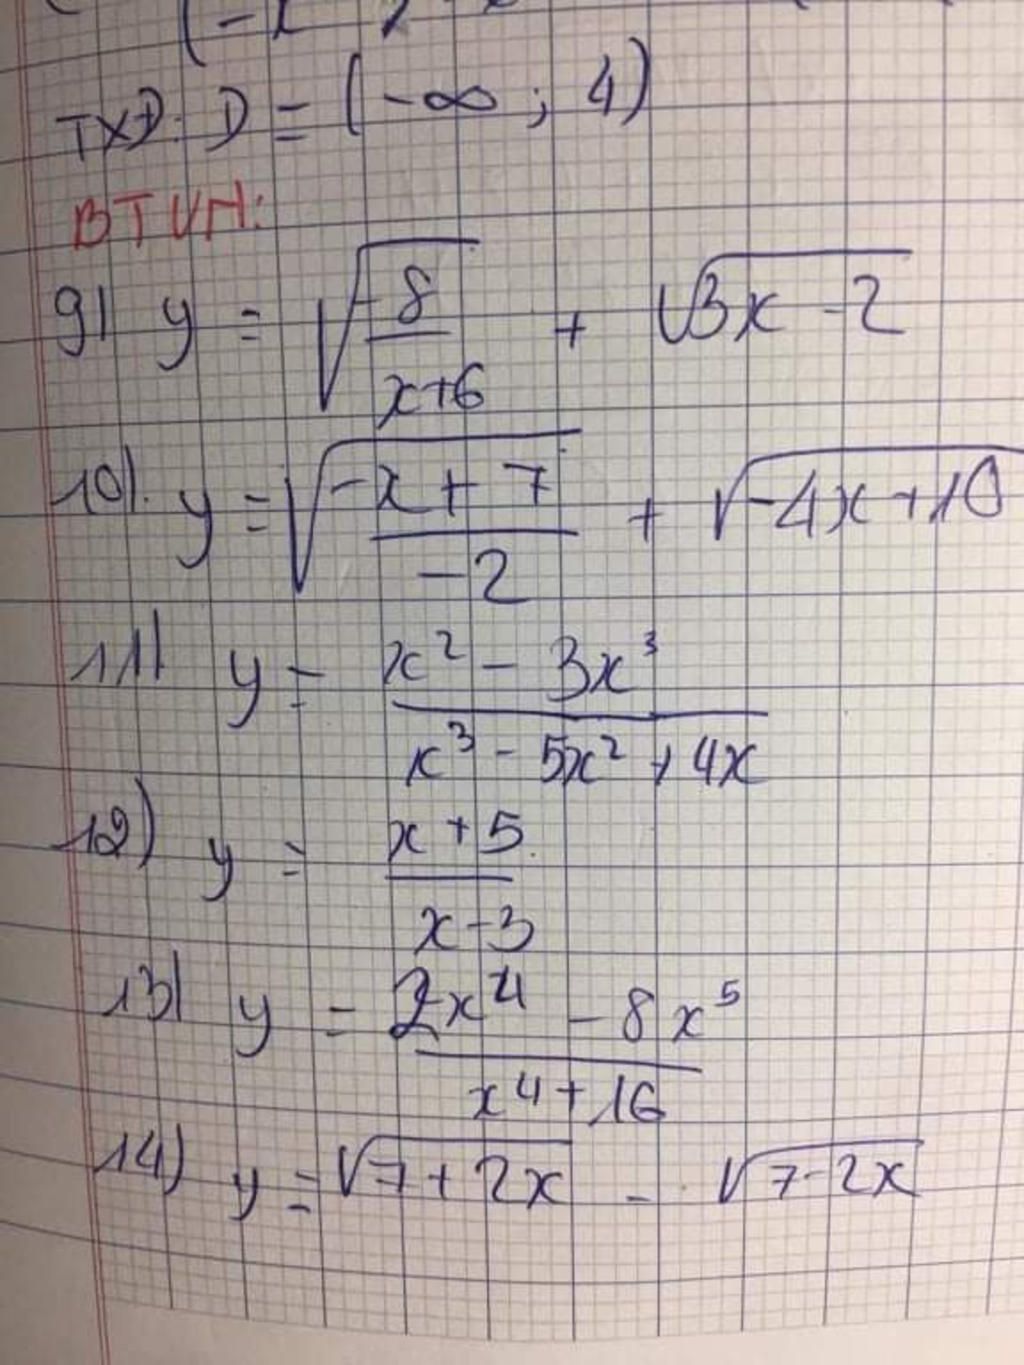 TXĐ: D = (-∞ ; 4)
BTVN:
9) y = √(-8/(x+6)) + √(3x-2)
10) y = √((-x+7)/(-2)) + √(-4x+10)
11) y = (x² - 3x³)/(x³ - 5x² + 4x)
12) y = (x+5)/(x-3)
13) y = (2x⁴ - 8x⁵)/(x⁴+16)
14) y = √(7+2x) - √(7-2x)